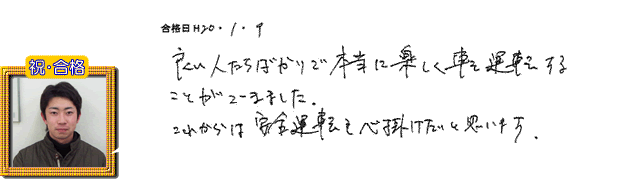 合格日 H20.1.9
祝・合格
良い人たちばかりで本当に楽しく車を運転する
ことができました.
これからは安全運転を心掛けたいと思います.